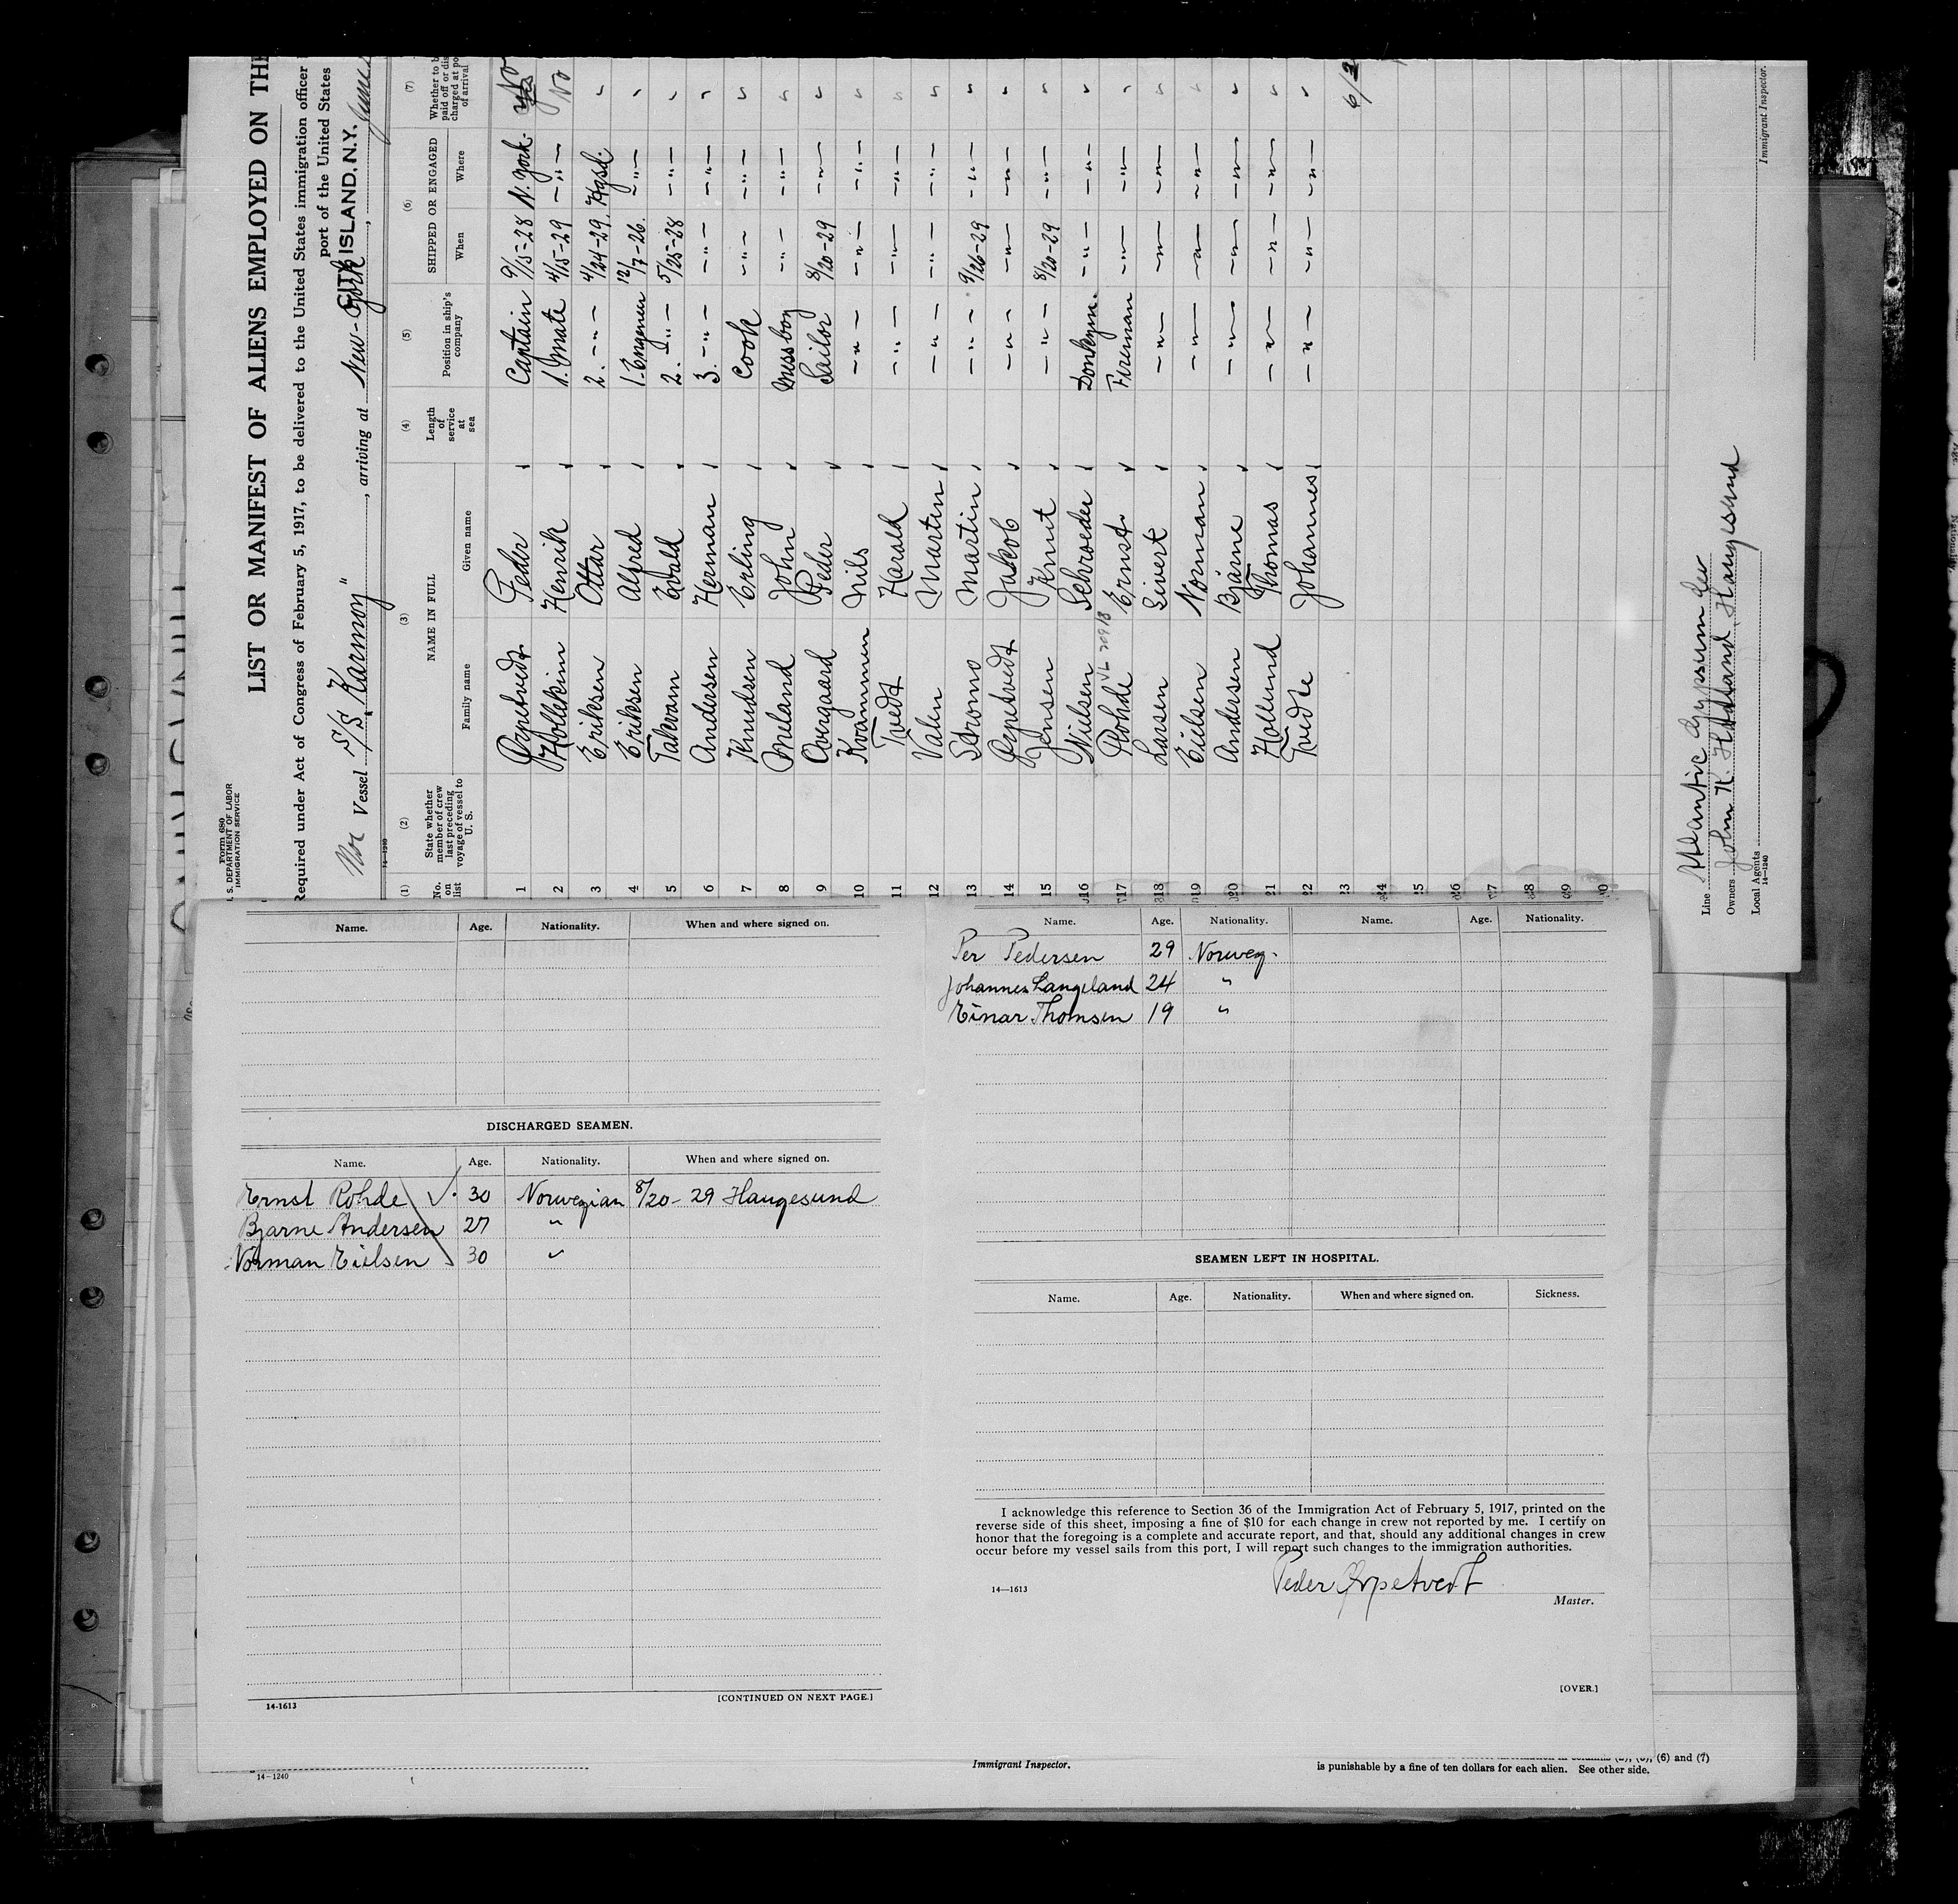 Form 680
S. DEPARTMENT OF LABOR
IMMIGRATION SERVICE
LIST OR MANIFEST OF ALIENS EMPLOYED ON THE
Required under Act of Congress of February 5, 1917, to be delivered to the United States immigration officer
port of the United States
CITY ISLAND, N.Y.
Nor Vessel S/S "Karmoy", arriving at New-York, June
14-1240
(1) (2) (3) (4) (5) (6) (7)
No. on list State whether member of crew last preceding voyage of vessel to U. S. NAME IN FULL Length of service at sea Position in ship's company SHIPPED OR ENGAGED Whether to b paid off or dis charged at po of arrival
Family name Given name When Where
1 Peder Captain 9/15-28 N. York. Yes No
2 Hollekim Henrik 1. Mate 4/15-29 -"- No
3 Eriksen Ottar 2. -"- 4/24-29. Hgsd. "
4 Eriksen Alfred 1. Engeneer 12/7-26. -"- "
5 Takvam Edvald 2. -"- 5/25-28 -"- "
6 Andersen Herman 3. -"- -"- -"- "
7 Knudsen Erling Cook -"- -"- "
8 Meland John Messboy -"- -"- "
9 Overgaard Peder Sailor 8/20-29 -"- "
10 Kvammen Nils -"- -"- -"- "
11 Tvedt Harald -"- -"- -"- "
12 Valen Martin -"- -"- -"- "
13 Stromo Martin -"- 9/26-29 -"- "
14 Jakob -"- -"- -"- "
15 Jensen Knut -"- 8/20-29 -"- "
16 Nielsen Schroeder Donkeym. -"- -"- "
17 Rohde Ernst. Fireman -"- -"- "
18 Larsen Sivert -"- -"- -"- "
19 Eielsen Norman -"- -"- -"- "
20 Andersen Bjarne -"- -"- -"- "
21 Hollund Thomas -"- -"- -"- "
22 Tvedte Johannes -"- -"- -"- "
23
24
25
26
27
28
29
30
Line Atlantic Gypsum
Owners John K. Haaland, Haugesund
Local Agents
14-1240
Immigrant Inspector.
Name. Age. Nationality. When and where signed on.
DISCHARGED SEAMEN.
Name. Age. Nationality. When and where signed on.
Ernst Rohde 30 Norwegian 8/20-29 Haugesund
Bjarne Andersen 27 "
Norman Eielsen 30 "
14-1613
[CONTINUED ON NEXT PAGE.]
Name. Age. Nationality. Name. Age. Nationality.
Per Pedersen 29 Norweg.
Johannes Langeland 24 "
Einar Thomsen 19 "
SEAMEN LEFT IN HOSPITAL.
Name. Age. Nationality. When and where signed on. Sickness.
I acknowledge this reference to Section 36 of the Immigration Act of February 5, 1917, printed on the
reverse side of this sheet, imposing a fine of $10 for each change in crew not reported by me. I certify on
honor that the foregoing is a complete and accurate report, and that, should any additional changes in crew
occur before my vessel sails from this port, I will report such changes to the immigration authorities.
14—1613
Peder
Master.
[OVER.]
14-1240
Immigrant Inspector.
(6) and (7)
is punishable by a fine of ten dollars for each alien. See other side.